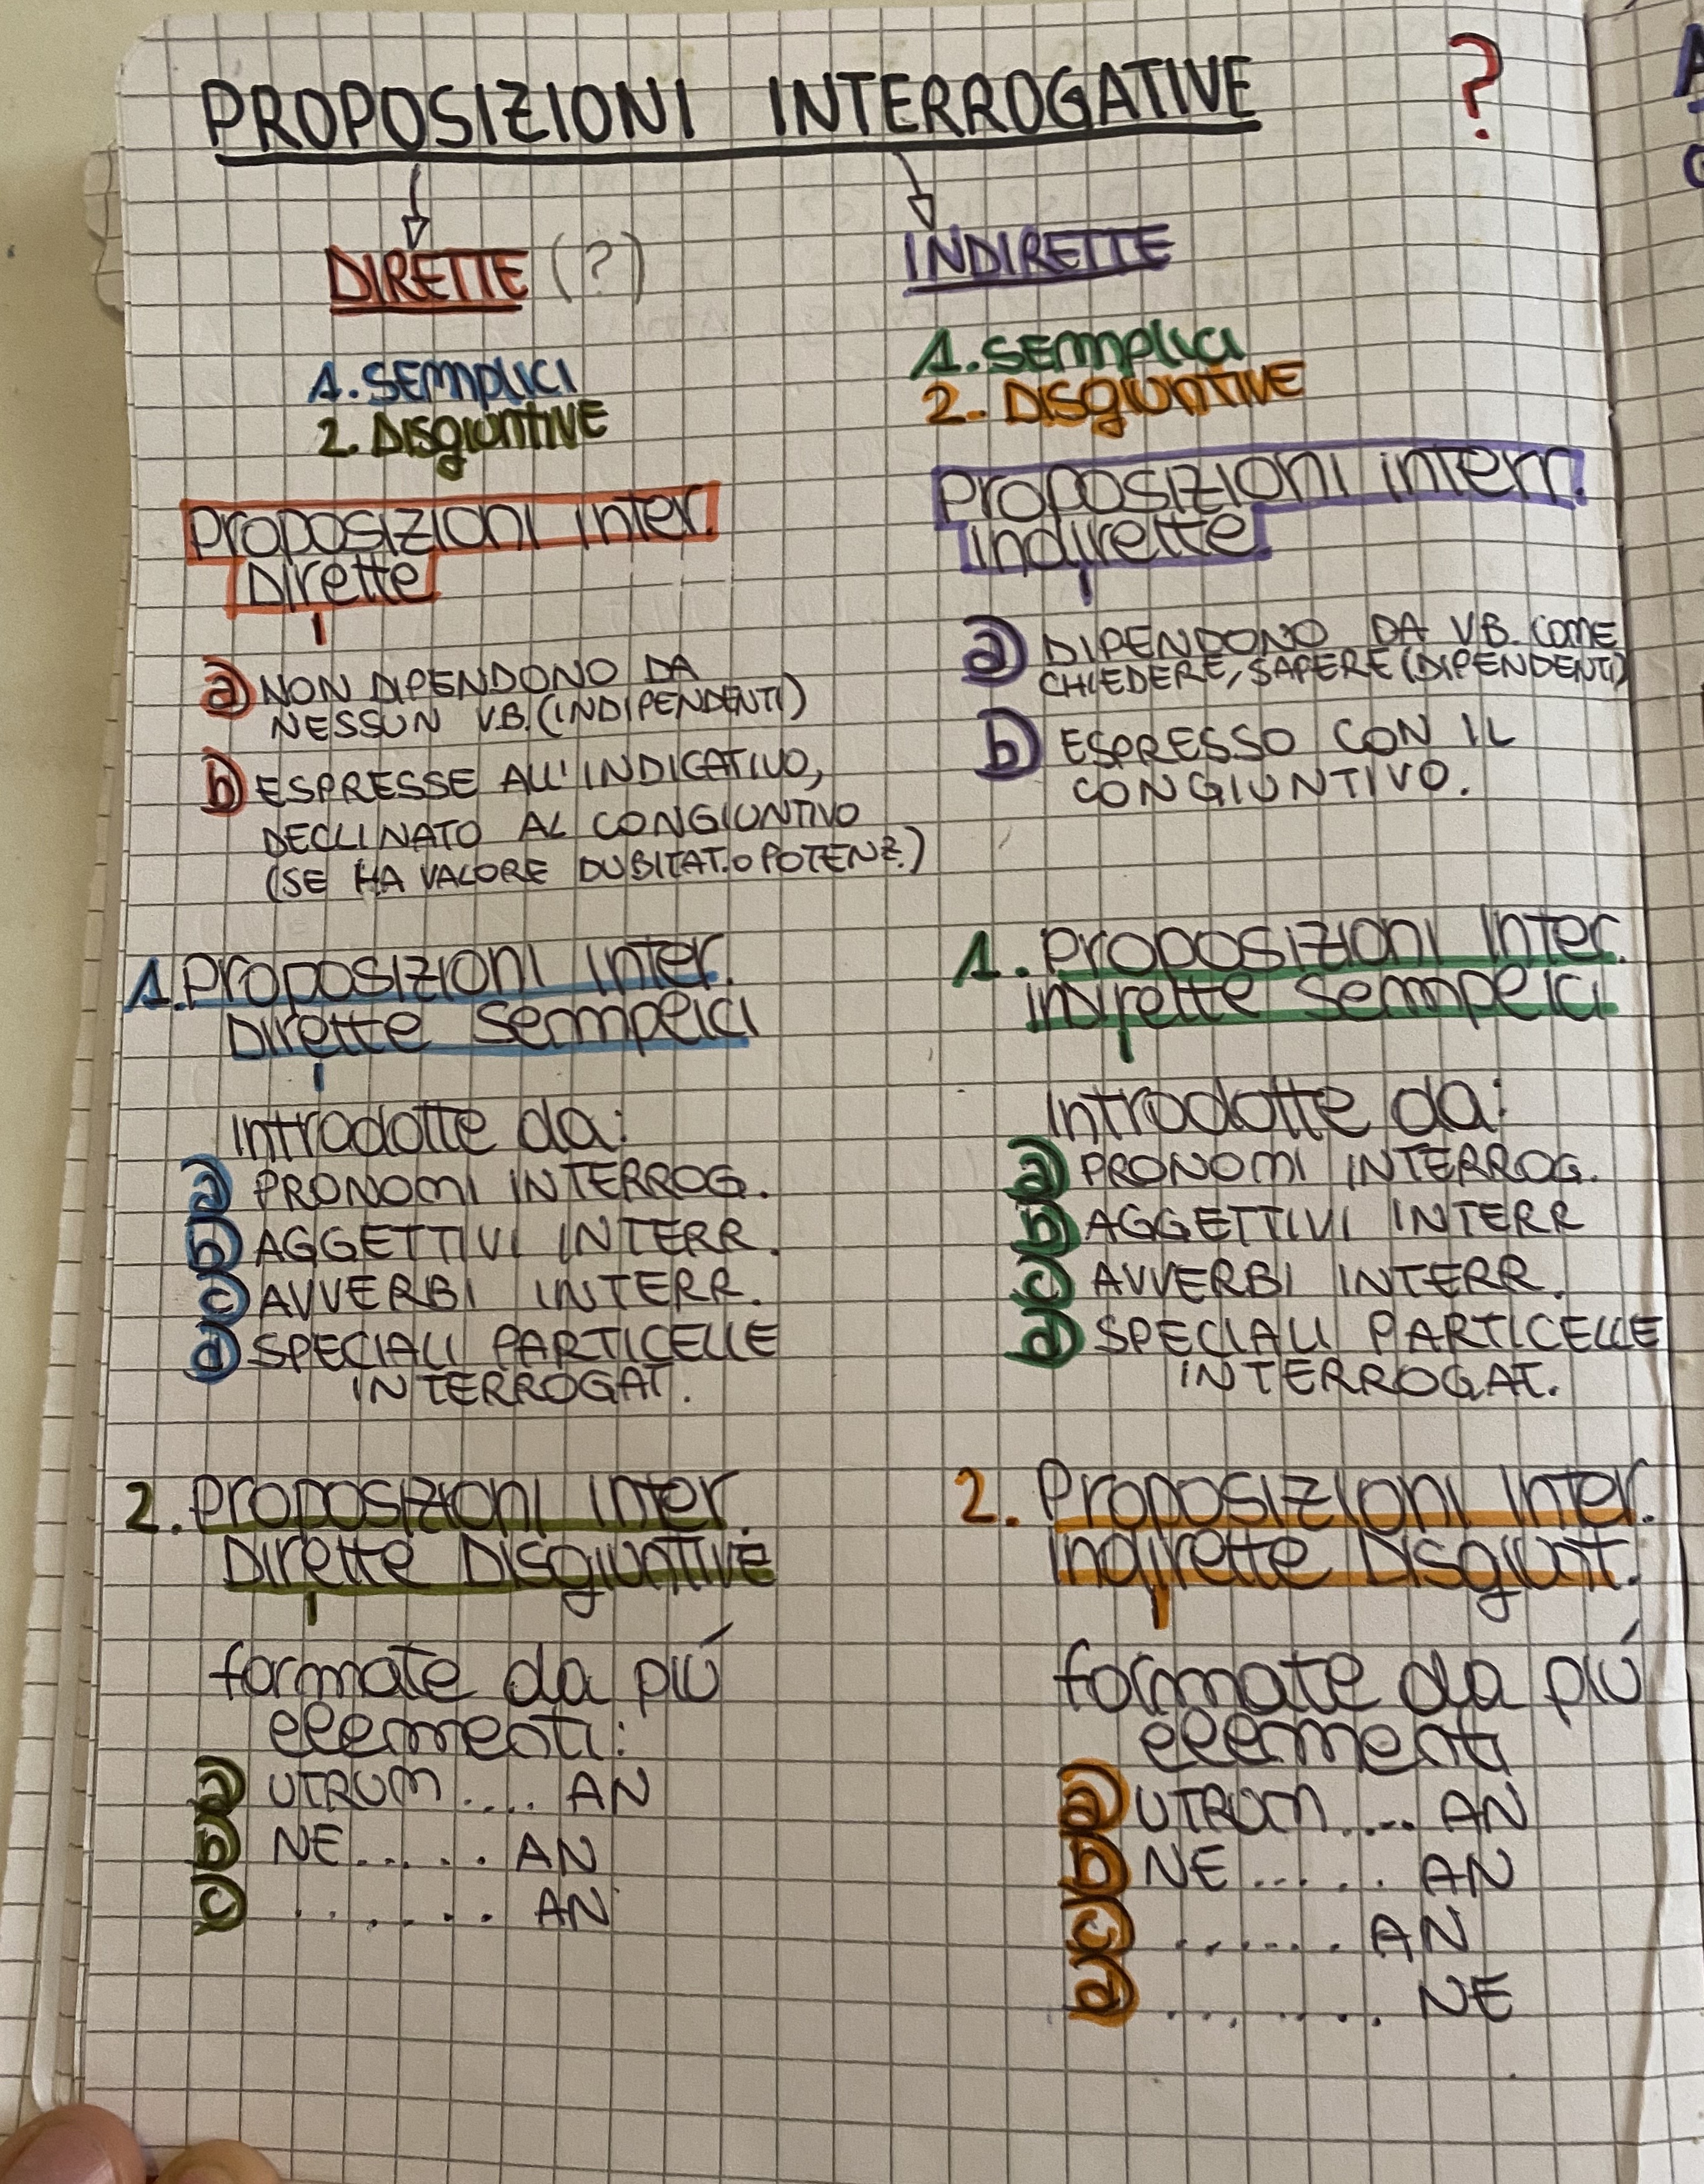 PROPOSIZIONI INTERROGATIVE ?
DIRETTE (?)
1. SEMPLICI
2. DISGIUNTIVE
PROPOSIZIONI INTER.
DIRETTE
a) NON DIPENDONO DA
NESSUN V.B. (INDIPENDENTI)
b) ESPRESSE ALL'INDICATIVO,
DECLINATO AL CONGIUNTIVO
(SE HA VALORE DUBITAT. O POTENZ.)
1. PROPOSIZIONI INTER.
DIRETTE SEMPLICI
INTRODOTTE DA:
a) PRONOMI INTERROG.
b) AGGETTIVI INTERR.
c) AVVERBI INTERR.
d) SPECIALI PARTICELLE
INTERROGAT.
2. PROPOSIZIONI INTER.
DIRETTE DISGIUNTIVE
formate da più
elementi:
a) UTRUM .... AN
b) NE ..... AN
c) ....... AN
INDIRETTE
1. SEMPLICI
2. DISGIUNTIVE
PROPOSIZIONI INTERR.
INDIRETTE
a) DIPENDONO DA V.B. COME
CHIEDERE, SAPERE (DIPENDENTI)
b) ESPRESSO CON IL
CONGIUNTIVO.
1. PROPOSIZIONI INTER.
INDIRETTE SEMPLICI
INTRODOTTE DA:
a) PRONOMI INTERROG.
b) AGGETTIVI INTERR
c) AVVERBI INTERR.
d) SPECIALI PARTICELLE
INTERROGAT.
2. PROPOSIZIONI INTER.
INDIRETTE DISGIUNT.
formate da più
elementi
a) UTRUM .... AN
b) NE ..... AN
c) ...... AN
d) ....... NE